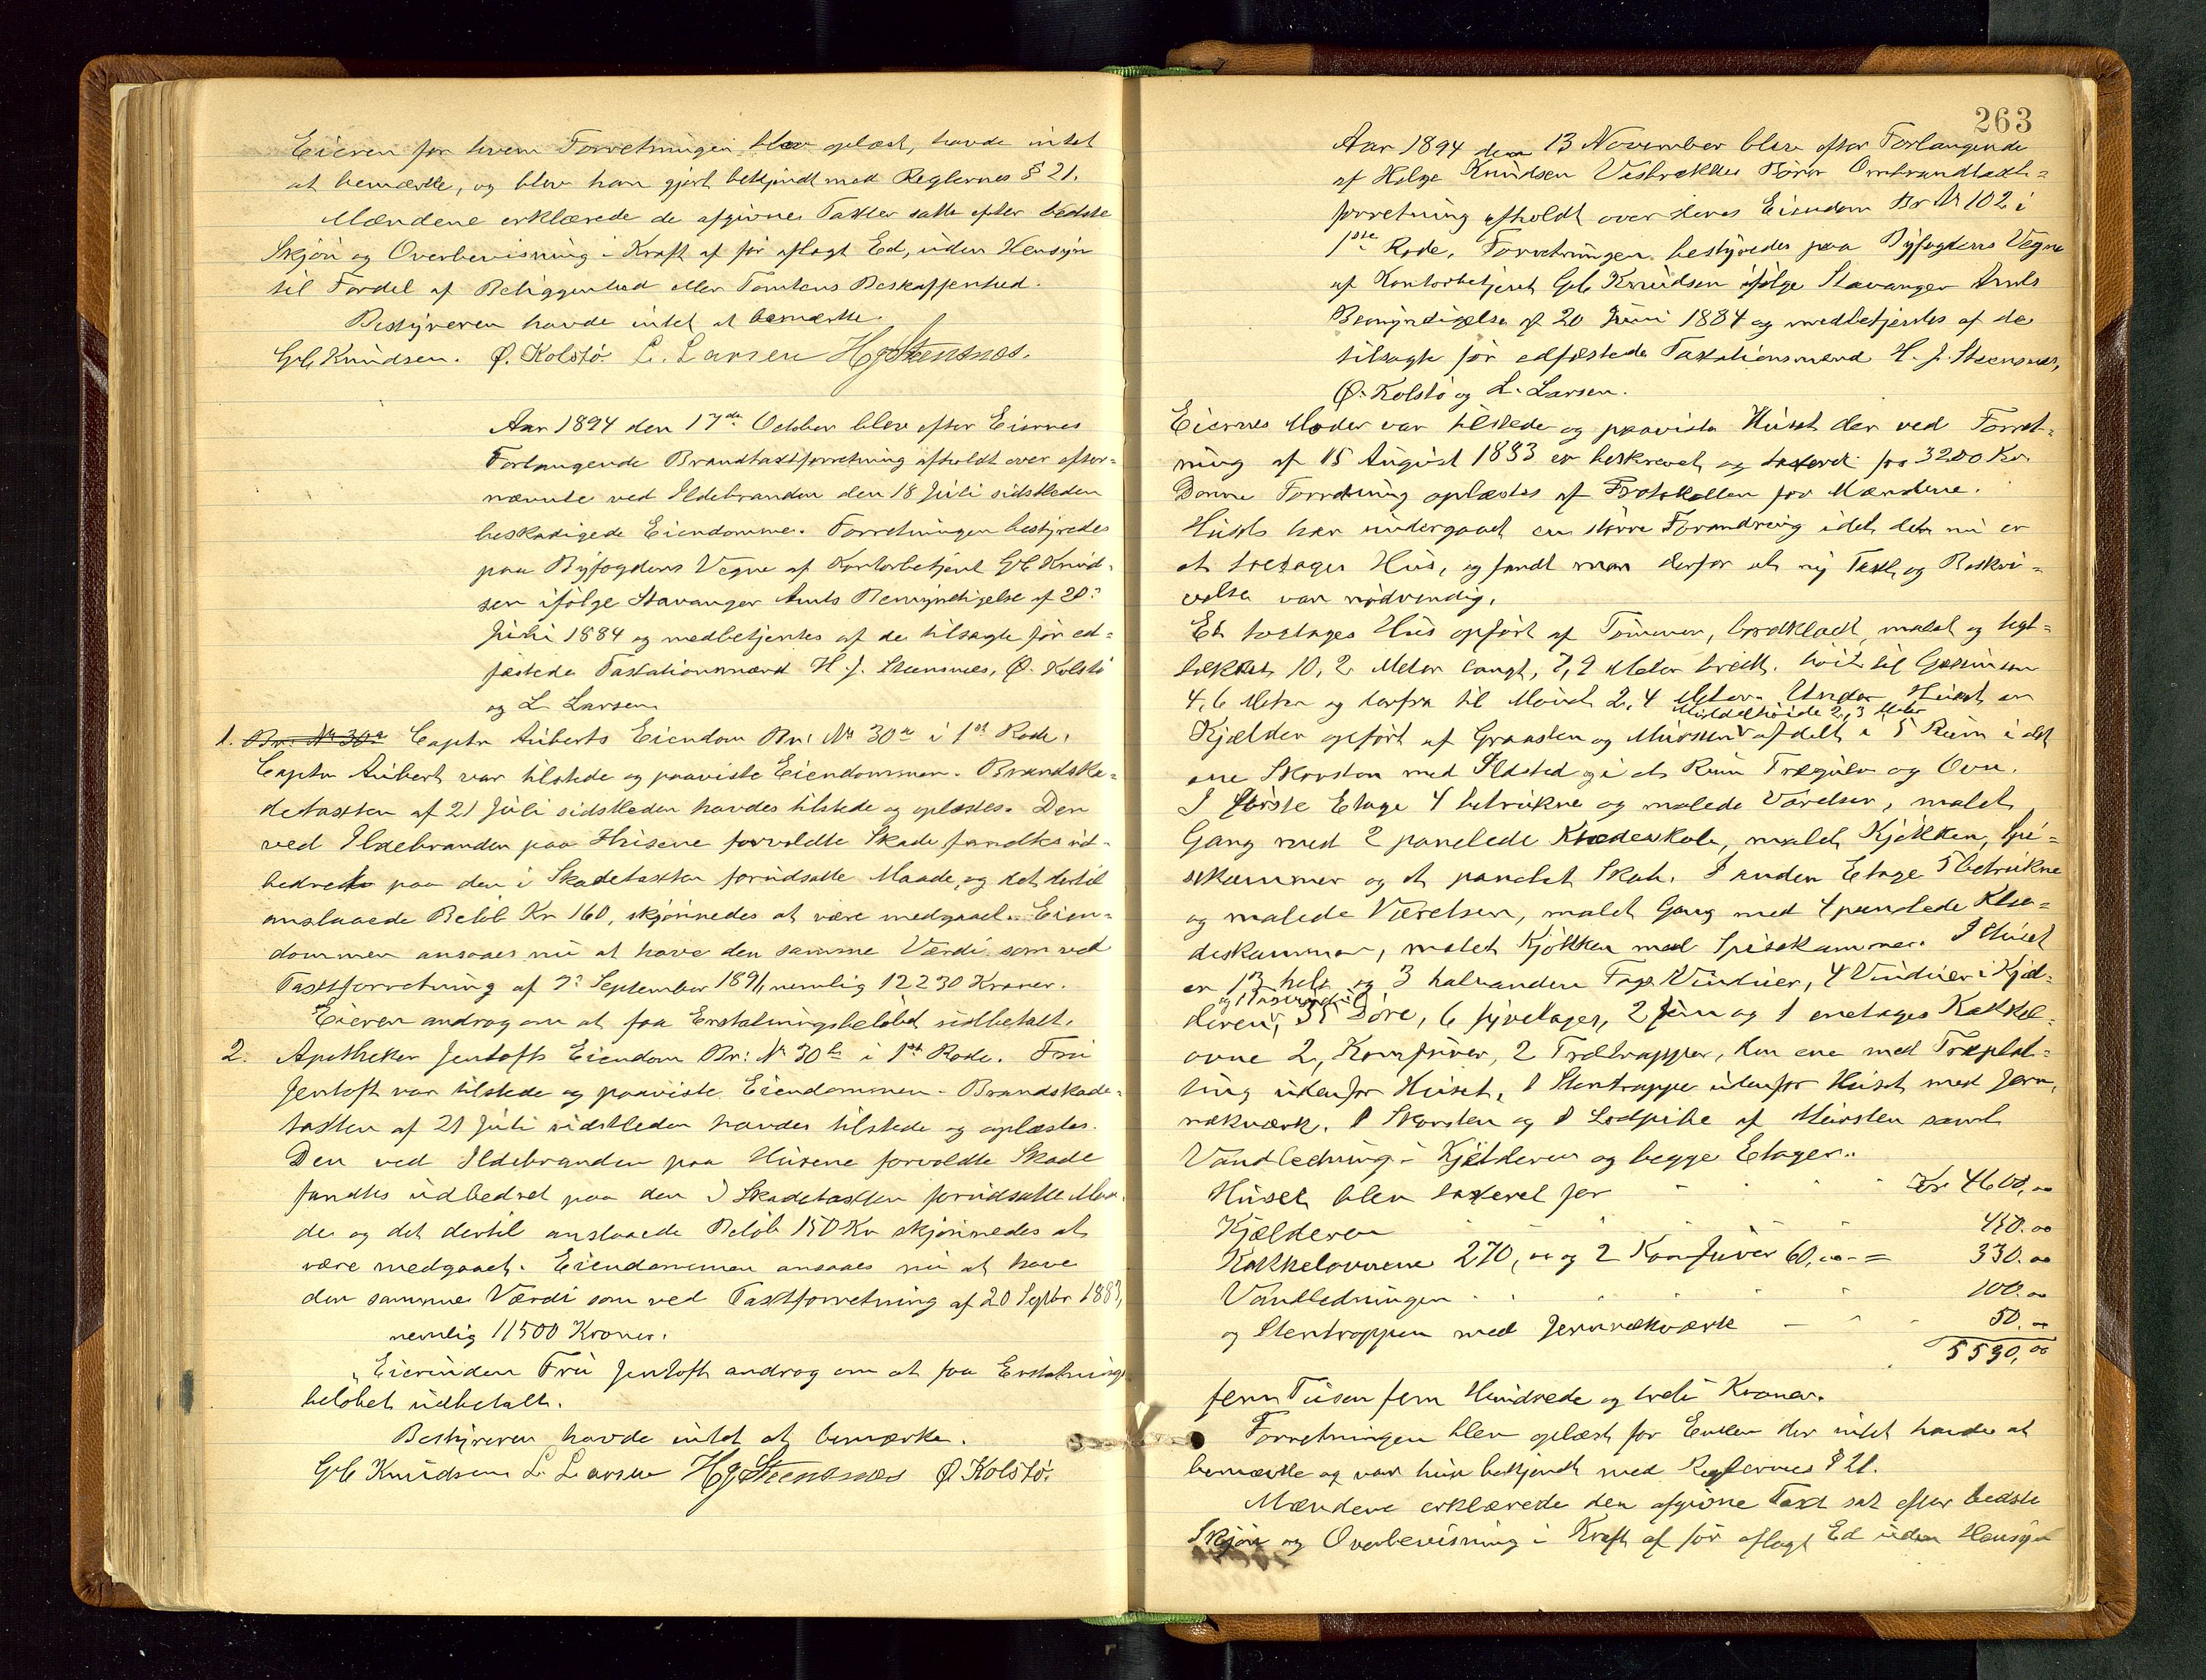 Eieren for hvem Forretningen blev oplæst, havde intet
at bemærke, og blev han gjort bekjendt med Reglernes § 21.
Mændene erklærede de afgivne Taxter satte efter bedste
Skjøn og Overbevisning i Kraft af før aflagt Ed, uden Hensyn
til Fordel af Beliggenhed eller Tomtens Beskaffenhed.
Bestyreren havde intet at bemærke.
Glb Knudsen. Ø. Kolstø. L. Larsen H J Steensnæs.
Aar 1894 den 17de October blev efter Eiernes
Forlangende Brandtaxtforretning afholdt over efter-
nævnte ved Ildebranden den 18 Juli sidstleden
beskadigede Eiendomme. Forretningen bestyredes
paa Byfogdens Vegne af Kontorbetjent Glb Knud-
sen ifølge Stavanger Amts Bemyndigelse af 20de
Juni 1884 og medbetjentes af de tilsagte før ed-
fæstede Taxationsmænd H. J. Steensnæs, Ø. Kolstø
og L. Larsen
1. Br: No 30a Captn Auberts Eiendom Br: No 30a i 1ste Rode.
Captn Aubert var tilstede og paaviste Eiendommen. Brandska-
detaxten af 21 Juli sidstleden havdes tilstede og oplæstes. Den
ved Ildebranden paa Husene forvoldte Skade fandtes ud-
bedret paa den i Skadetaxten forudsatte Maade, og det dertil
anslaaede Beløb Kr 160, skjønnedes at være medgaaet. Eien-
dommen ansaaes nu at have den samme Værdi som ved
Taxtforretning af 7de September 1891, nemlig 12230 Kroner.
Eieren androg om at faa Erstatningsbeløbet udbetalt.
2. Apotheker Jentofts Eiendom Br: No 30b i 1ste Rode. Fru
Jentoft var tilstede og paaviste Eiendommen. Brandskade-
taxten af 21 Juli sidstleden havdes tilstede og oplæstes.
Den ved Ildebranden paa Husene forvoldte Skade
fandtes udbedret paa den I Skadetaxten forudsatte Maa-
de og det dertil anslaaede Beløb 150 Kr skjønnedes at
være medgaaet. Eiendommen ansaaes nu at have
den samme Værdi som ved Taxtforretning af 20 Septbr 1883,
nemlig 11500 Kroner.
Eierinden Fru Jentoft androg om at faa Erstatnings
beløbet udbetalt.
Bestyreren havde intet at bemærke.
Glb Knudsen L. Larsen H J Steensnæs Ø. Kolstø.
263
Aar 1894 den 13 November blev efter Forlangende
af Helge Knudsen Vestrekkes Børn Ombrandtaxt-
forretning afholdt over deres Eiendom Br No 102 i
1ste Rode. Forretningen bestyredes paa Byfogdens Vegne
af Kontorbetjent Glb Knudsen ifølge Stavanger Amts
Bemyndigelse af 20 Juni 1884 og medbetjentes af de
tilsagte før edfæstede Taxationsmænd H. J. Steensnæs,
Ø. Kolstø og L. Larsen.
Eiernes Moder var tilstede og paaviste Huset der ved Forret-
ning af 15 August 1883 er beskrevet og taxeret for 3200 Kr.
Denne Forretning oplæstes af Protokollen for Mændene.
Husets har undergaaet en større Forandring idet det nu er
et toetages Hus, og fandt man derfor at ny Taxt og Beskri-
velse var nødvendig.
Et toetages Hus opført af Tømmer, bordklædt, malet og tegl-
tækket 10,2 Meter langt, 7,9 Meter bredt, høit til Gesimsen
4,6 Meter og derfra til Mønet 2,4 Meter. Under Huset en
Middelhøide 2,3 Meter
Kjælder opført af Graasten og Mursten afdelt i 5 Rum i det
ene Skorsten med Ildsted og i et Rum Trægulv og Ovn.
I første Etage 4 betrukne og malede Værelser, malet
Gang med 2 panelede Klædeskabe, malet Kjøkken, Spi-
skammer og et panelet Skab. I anden Etage 5 betrukne
og malede Værelser, malet Gang med 4 panelede Klæ-
deskammer, malet Kjøkken med Spiskammer. I Huset
er 13 hele og 3 halvanden Fags Vinduer, 4 Vinduer i Kjæl-
deren, 35 Døre, 6 fyretages, 2 fem og 1 enetages Kakkel-
ovne 2, Komfurer, 2 Trætrapper, den ene med Træplat-
ting udenfor Huset, 1 Stentrappe udenfor Huset med Jern-
rækværk, 1 Skorsten og 1 Lodpibe af Mursten samt
Vandledning i Kjælderen og begge Etager.
Huset blev taxeret for Kr 4600,00
Kjælderen 450.00
Kakkelovnene 270,00 og 2 Komfurer 60,00 = 330.00
Vandledningen 100.00
og Stentrappen med Jernrækværk 50.00
5530,00
fem Tusen fem Hundrede og tredi Kroner.
Forretningen blev oplæst for Enken der intet havde at
bemærke og var hun bekjendt med Reglernes § 21.
Mændene erklærede den afgivne Taxt sat efter bedste
Skjøn og Overbevisning i Kraft af før aflagt Ed uden Hensyn